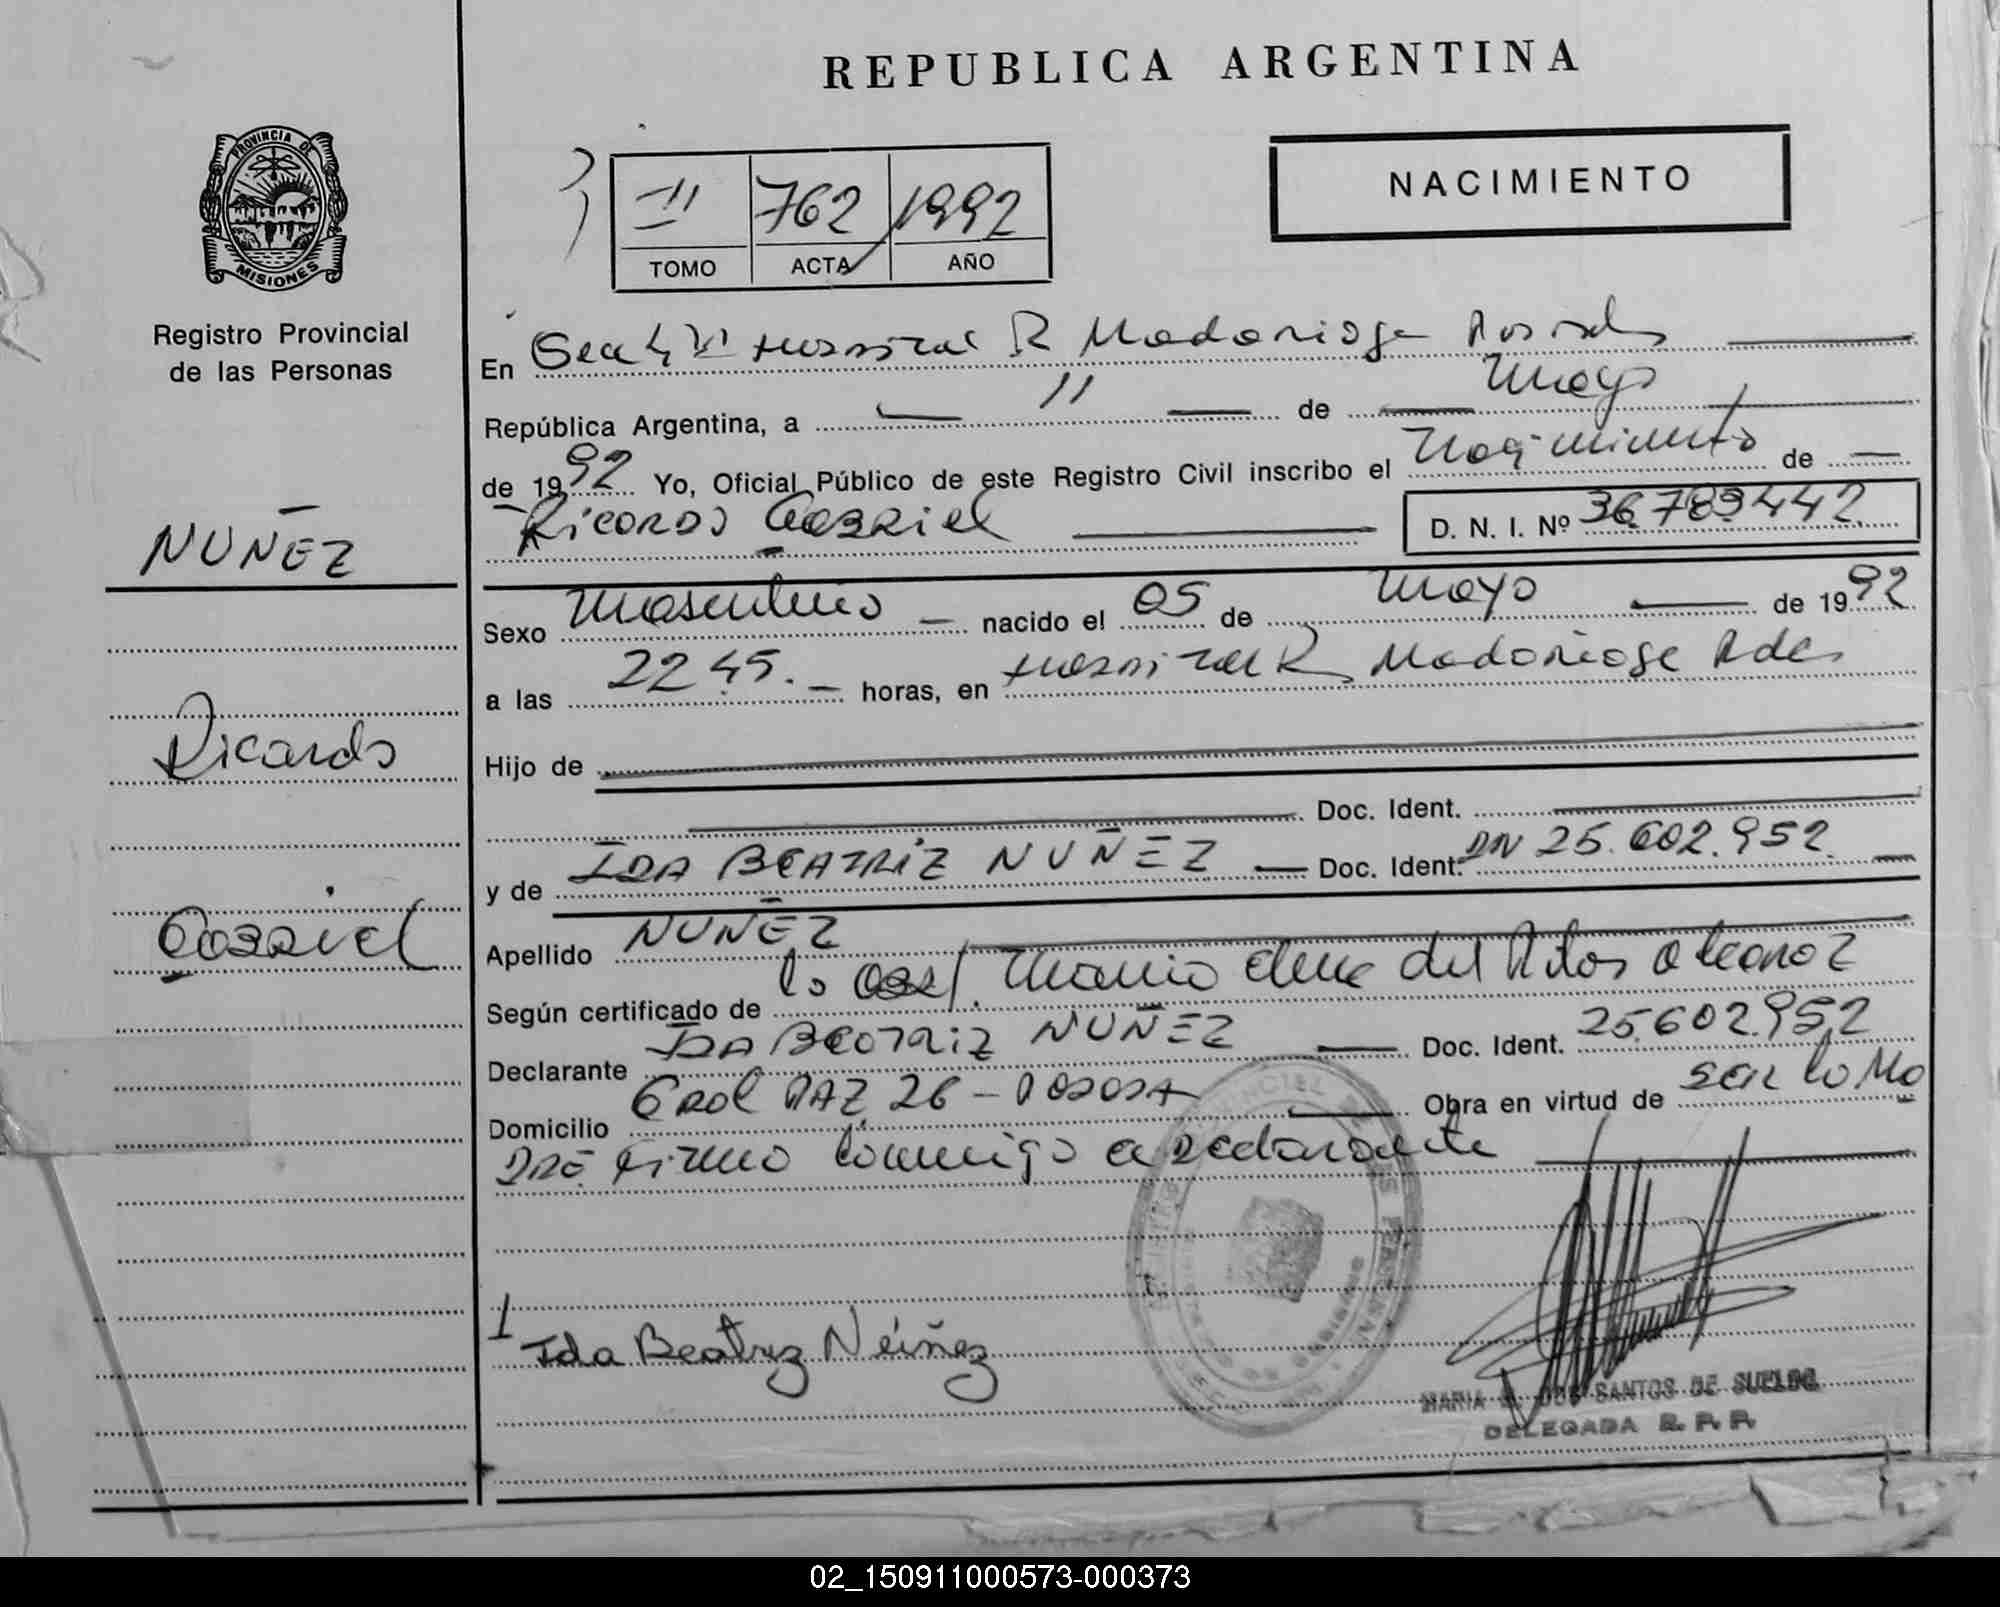 REPUBLICA ARGENTINA
PROVINCIA DE
MISIONES
Registro Provincial
de las Personas
II 762 1992
TOMO ACTA AÑO
NACIMIENTO
En Secc Hospital R Madariaga Posadas
República Argentina, a 11 de mayo
de 1992 Yo, Oficial Público de este Registro Civil inscribo el Nacimiento de
Ricardo Gabriel D. N. I. Nº 36.789.442
NUÑEZ
Ricardo
Gabriel
Sexo Masculino nacido el 05 de mayo de 1992
a las 22 45. horas, en Hospital R Madariaga Pdas
Hijo de
Doc. Ident.
y de IDA BEATRIZ NUÑEZ Doc. Ident. DN 25.602.952
Apellido NUÑEZ
Según certificado de la Obst. del
Declarante IDA BEATRIZ NUÑEZ Doc. Ident. 25.602.952
Domicilio Gral PAZ 26 - POSADA Obra en virtud de ser la Ma
dre firma conmigo la declarante
Ida Beatriz Núñez
MARIA DOS SANTOS DE SUELDO
DELEGADA R. P. P.
02_150911000573-000373